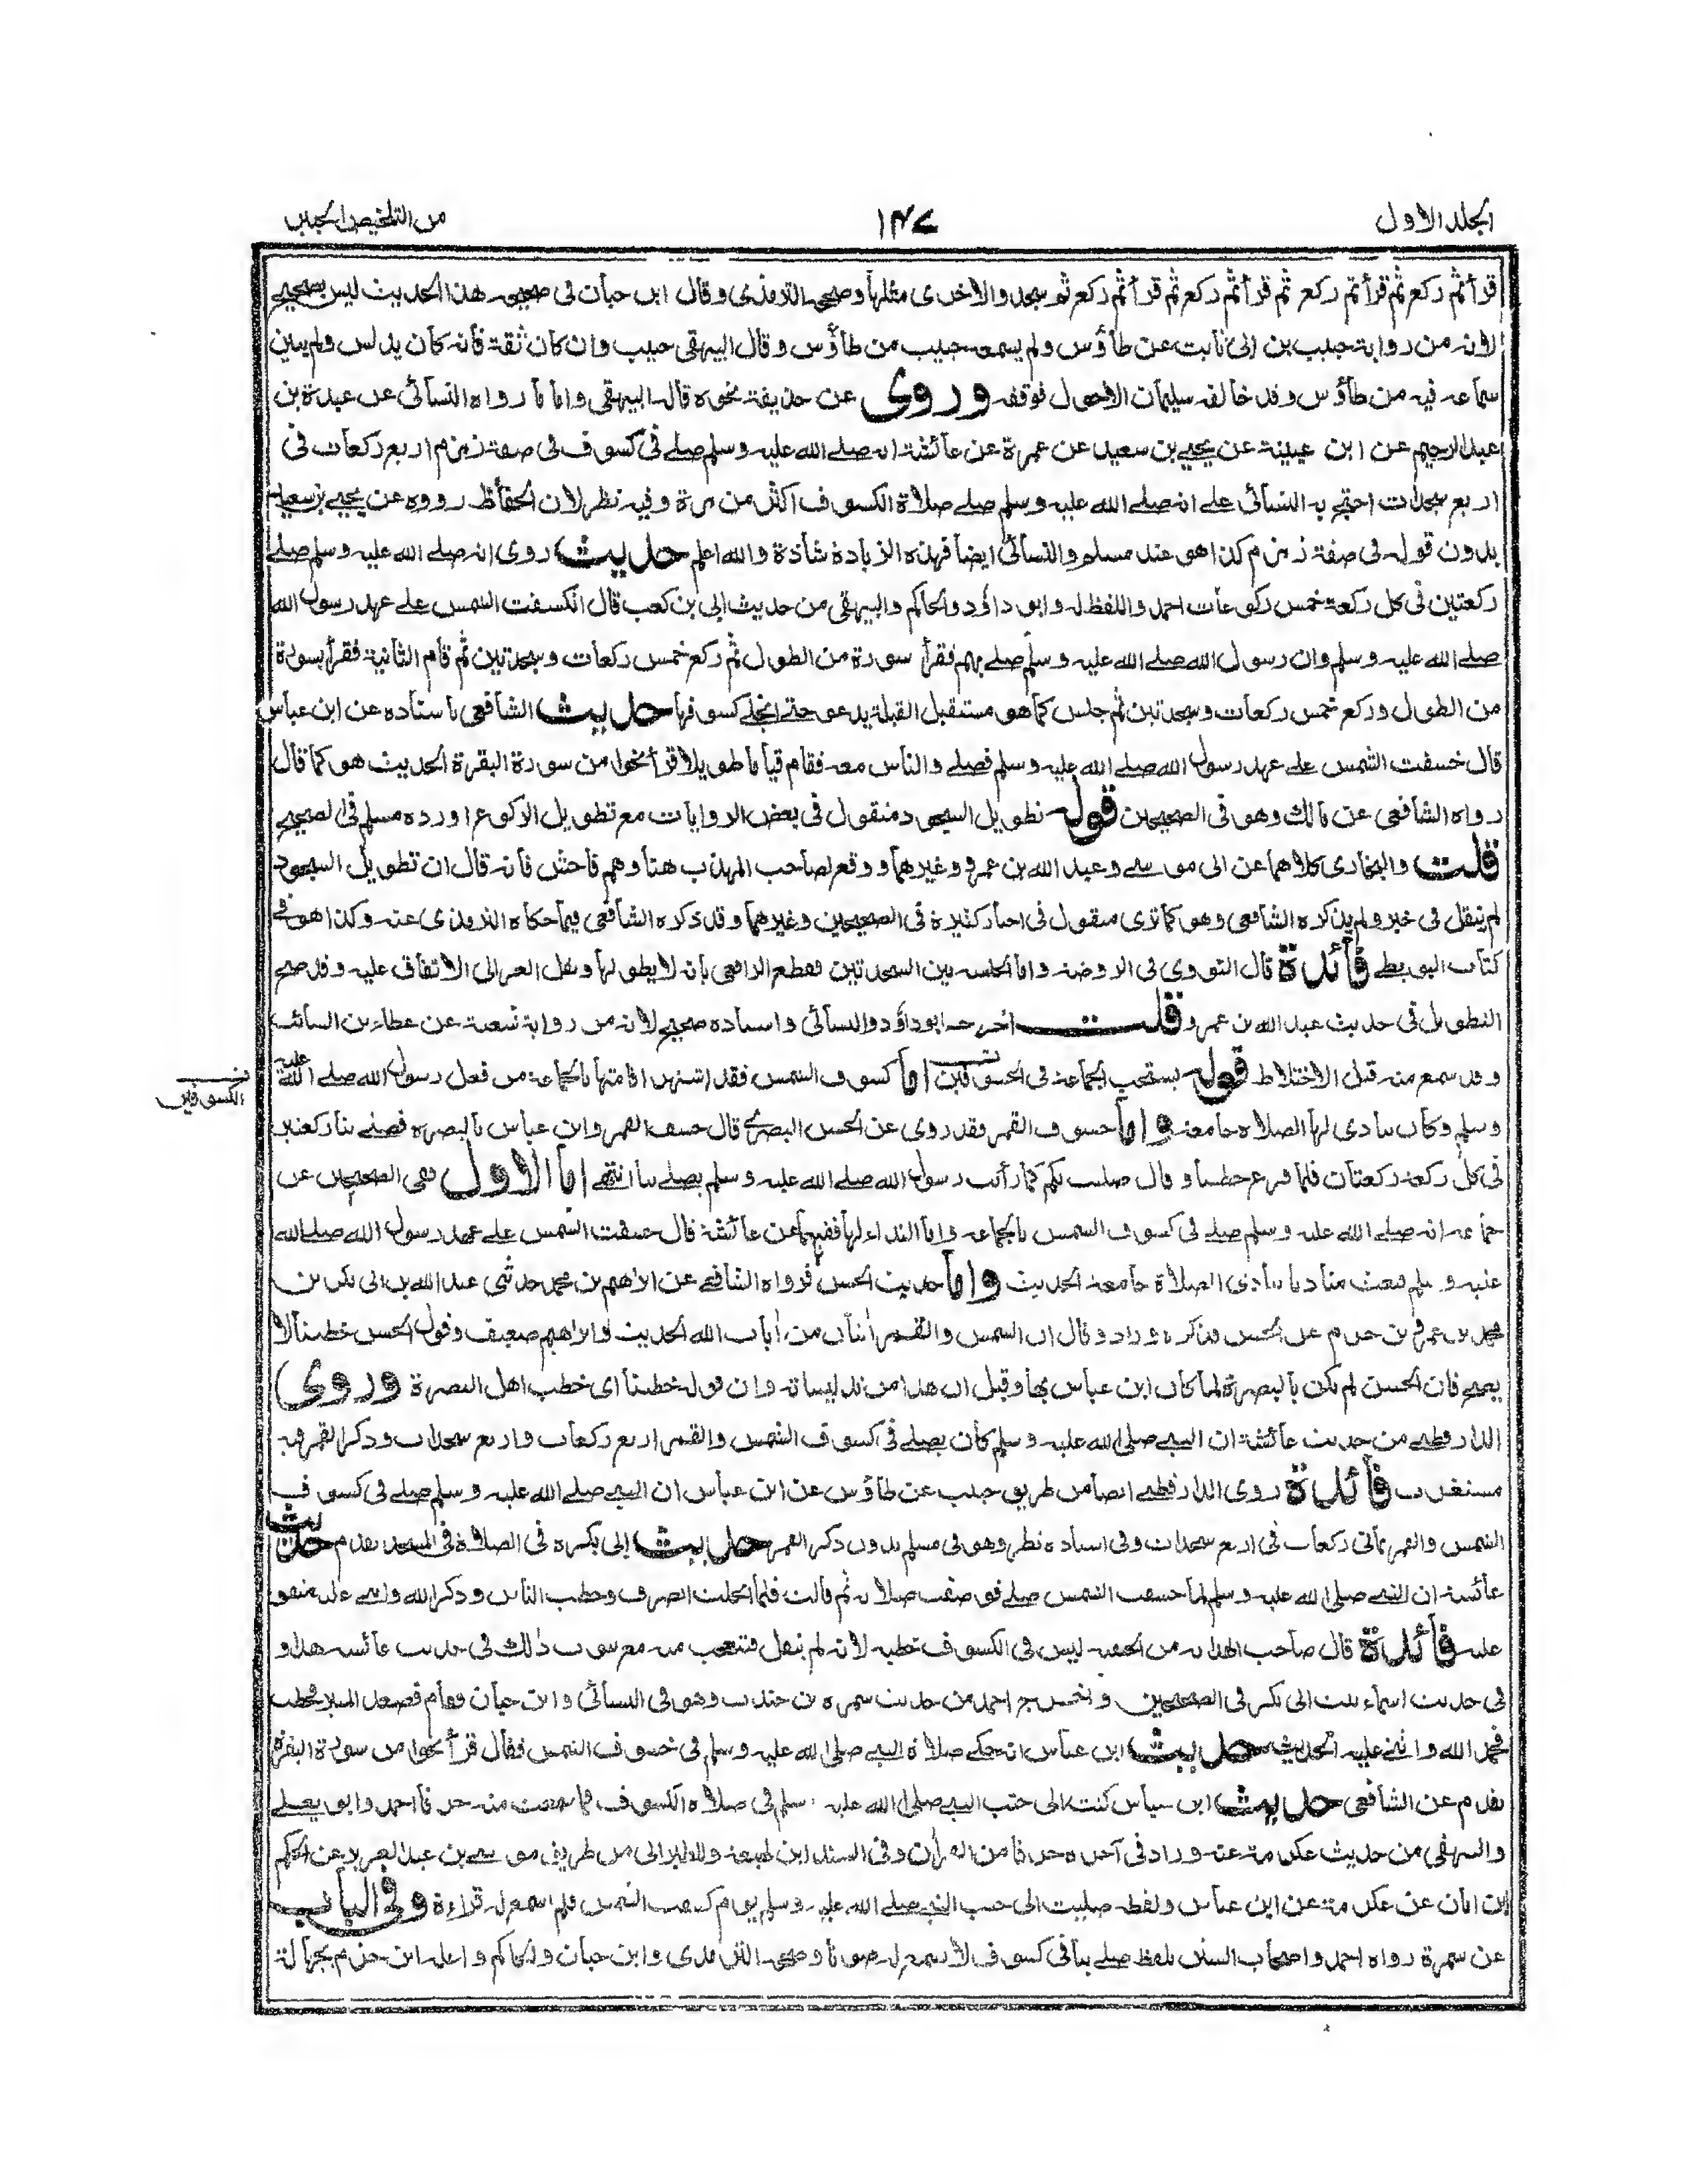 الجلد الاول
١٤٧
من التلخيص الحبير
قرأ ثم ركع ثم قرأ ثم ركع ثم قرأ ثم ركع ثم قرأ ثم ركع ثم سجد والاخرى مثلها وصححه الترمذى وقال ابن حبان فى صحيحه هذا الحديث ليس بصحيح
لانه من رواية حبيب بن ابى ثابت عن طاؤس ولم يسمعه حبيب من طاؤس وقال البيهقى حبيب وان كان ثقة فانه كان يدلس ولم يبين
سماعه فيه من طاؤس وقد خالفه سليمان الاحول فوقفه وروى عن حذيفة نحوه قاله البيهقى واما ما رواه النسائى عن عبدة بن
عبد الرحيم عن ابن عيينة عن يحيى بن سعيد عن عمرة عن عائشة انه صلى الله عليه وسلم صلى فى كسوف فى صفة زمزم اربع ركعات فى
اربع سجدات احتج به النسائى على انه صلى الله عليه وسلم صلى صلاة الكسوف اكثر من مرة وفيه نظر لان الحفاظ رووه عن يحيى بن سعيد
بدون قوله فى صفة زمزم كذا هو عند مسلم والنسائى ايضا فهذه الزيادة شاذة والله اعلم حديث روى انه صلى الله عليه وسلم صلى
ركعتين فى كل ركعة خمس ركوعات احمد واللفظ له وابو داؤد والحاكم والبيهقى من حديث ابى بن كعب قال انكسفت الشمس على عهد رسول الله
صلى الله عليه وسلم وان رسول الله صلى الله عليه وسلم صلى بهم فقرأ سورة من الطول ثم ركع خمس ركعات وسجدتين ثم قام الثانية فقرأ بسورة
من الطول وركع خمس ركعات وسجدتين ثم جلس كما هو مستقبل القبلة يدعو حتى انجلى كسوفها حديث الشافعى باسناده عن ابن عباس
قال خسفت الشمس على عهد رسول الله صلى الله عليه وسلم فصلى والناس معه فقام قياما طويلا قرأ نحوا من سورة البقرة الحديث هو كما قال
رواه الشافعى عن مالك وهو فى الصحيحين قوله تطويل السجود منقول فى بعض الروايات مع تطويل الركوع اورده مسلم فى الصحيح
قلت والبخارى كلاهما عن ابى موسى وعبد الله بن عمرو وغيرهما ووقع لصاحب المهذب هنا وهم فاحش فانه قال ان تطويل السجود
لم ينقل فى خبر ولم يذكره الشافعى وهو كما ترى منقول فى اخبار كثيرة فى الصحيحين وغيرهما وقد ذكره الشافعى فيما حكاه الترمذى عنه وكذا هو فى
كتاب البويطى فائدة قال النووى فى الروضة واما الجلسة بين السجدتين فقطع الرافعى بانه لا يطولها ونقل الغزالى الاتفاق عليه وقد صح
التطويل فى حديث عبد الله بن عمرو قلت اخرجه ابوداؤد والنسائى واسناده صحيح لانه من رواية شعبة عن عطاء بن السائب
وقد سمع منه قبل الاختلاط قوله يستحب الجماعة فى الخسوفين اما كسوف الشمس فقد اشتهر اقامتها بالجماعة من فعل رسول الله صلى الله عليه
نخـ
الكسوفين
وسلم وكان ينادى لها الصلاة جامعة واما خسوف القمر فقد روى عن الحسن البصرى قال خسف القمر وابن عباس بالبصرة فصلى بنا ركعتين
فى كل ركعة ركعتان فلما فرغ خطبنا وقال صليت بكم كما رأيت رسول الله صلى الله عليه وسلم يصلى بنا انتهى اما الاول ففى الصحيحين عن
جماعة انه صلى الله عليه وسلم صلى فى كسوف الشمس بالجماعة واما النداء لها ففيهما عن عائشة قال خسفت الشمس على عهد رسول الله صلى الله
عليه وسلم فبعث مناديا ينادى الصلاة جامعة الحديث واما حديث الحسن فرواه الشافعى عن ابراهيم بن محمد حدثنى عبد الله بن ابى بكر بن
محمد بن عمرو بن حزم عن الحسن فذكره وزاد وقال ان الشمس والقمر اٰيتان من اٰيات الله الحديث وابراهيم ضعيف وقول الحسن خطبنا لا
يصح فان الحسن لم يكن بالبصرة لما كان ابن عباس بها وقيل ان هذا من تدليساته وان قوله خطبنا اى خطب اهل البصرة (وروى
الدارقطنى من حديث عائشة ان النبى صلى الله عليه وسلم كان يصلى فى كسوف الشمس والقمر اربع ركعات واربع سجدات وذكر القمر فيه
مستغرب فائدة روى الدارقطنى ايضا من طريق حبيب عن طاؤس عن ابن عباس ان النبى صلى الله عليه وسلم صلى فى كسوف
الشمس والقمر ثمانى ركعات فى اربع سجدات وفى اسناده نظر وهو فى مسلم بدون ذكر القمر حديث ابى بكرة فى الصلاة فى المسجد تقدم حديث
عائشة ان النبى صلى الله عليه وسلم لما خسفت الشمس صلى فوصفت صلاته ثم قالت فلما انجلت انصرف وخطب الناس وذكر الله واثنى عليه متفق
عليه فائدة قال صاحب الهداية من الحنفية ليس فى الكسوف خطبة لانه لم ينقل فتعجب منه مع ثبوت ذلك فى حديث عائشة هذا و
فى حديث اسماء بنت ابى بكر فى الصحيحين واخرج احمد من حديث سمرة بن جندب وهو فى النسائى وابن حبان فقام فصعد المنبر فخطب
فحمد الله واثنى عليه الحديث حديث ابن عباس انه حكى صلاة النبى صلى الله عليه وسلم فى خسوف الشمس فقال قرأ نحوا من سورة البقرة
تقدم عن الشافعى حديث ابن عباس كنت الى جنب النبى صلى الله عليه وسلم فى صلاة الكسوف فما سمعت منه حرفا احمد وابو يعلى
والبيهقى من حديث عكرمة عنه وزاد فى آخره حرفا من القرأن وفى السند ابن لهيعة وللطبرانى من طريق موسى بن عبد العزيز عن الحكم
ابن ابان عن عكرمة عن ابن عباس ولفظه صليت الى جنب النبى صلى الله عليه وسلم يوم كسفت الشمس فلم اسمع له قراءة وفى الباب
عن سمرة رواه احمد واصحاب السنن بلفظ صلى بنا فى كسوف لا نسمع له صوتا وصححه الترمذى وابن حبان والحاكم واعله ابن حزم بجهالة